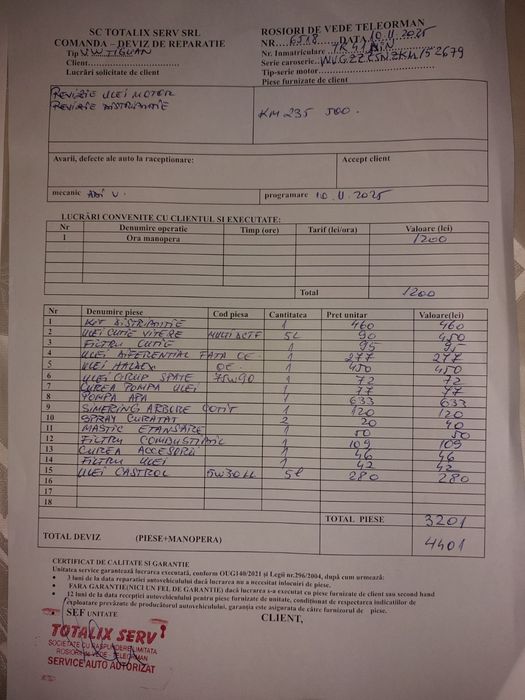 SC TOTALIX SERV SRL
ROSIORI DE VEDE TELEORMAN
COMANDA – DEVIZ DE REPARATIE
NR. 6518 DATA 10.11.2025
Tip VW TIGUAN
Nr. Inmatriculare
Client
Serie caroserie
Lucrări solicitate de client
Tip-serie motor
Piese furnizate de client
REVIZIE ULEI MOTOR
REVIZIE DISTRIBUTIE
KM 235 500.
Avarii, defecte ale auto la raceptionare:
Accept client
mecanic
programare 10.11.2025
LUCRĂRI CONVENITE CU CLIENTUL SI EXECUTATE:
Nr Denumire operatie Timp (ore) Tarif (lei/ora) Valoare (lei)
1 Ora manopera 1200
Total 1200
Nr Denumire piese Cod piesa Cantitatea Pret unitar Valoare(lei)
1 KIT DISTRIBUTIE 1 460 460
2 ULEI CUTIE VITEZE MULTI DCTF 5L 90 450
3 FILTRU CUTIE 1 95 95
4 ULEI DIFERENTIAL FATA OE 1 277 277
5 ULEI HALDEX OE 1 450 450
6 ULEI GRUP SPATE 75W90 1 72 72
7 CUREA POMPA ULEI 1 77 77
8 POMPA APA 1 633 633
9 SIMERING ARBORE COTIT 1 120 120
10 SPRAY CURATAT 2 20 40
11 MASTIC ETANSARE 1 50 50
12 FILTRU COMBUSTIBIL 1 109 109
13 CUREA ACCESORII 1 46 46
14 FILTRU ULEI 1 42 42
15 ULEI CASTROL 5W30 LL 5L 280 280
16
17
18
TOTAL PIESE 3201
TOTAL DEVIZ (PIESE+MANOPERA) 4401
CERTIFICAT DE CALITATE SI GARANTIE
Unitatea service garantează lucrarea executată, conform OUG140/2021 și Legii nr.296/2004, după cum urmează:
• 3 luni de la data reparatiei autovehiculului dacă lucrarea nu a necesitat inlocuiri de piese.
• FARA GARANTIE(NICI UN FEL DE GARANTIE) dacă lucrarea s-a executat cu piese furnizate de client sau second hand
• 12 luni de la data recepției autovehiculului pentru piese furnizate de unitate, condiționat de respectarea indicatiilor de
exploatare prevăzute de producătorul autovehiculului, garanția este asigurata de către furnizorul de piese.
SEF UNITATE
CLIENT,
TOTALIX SERV
SOCIETATE CU RASPUNDERE LIMITATA
ROSIORII DE VEDE TELEORMAN
SERVICE AUTO AUTORIZAT